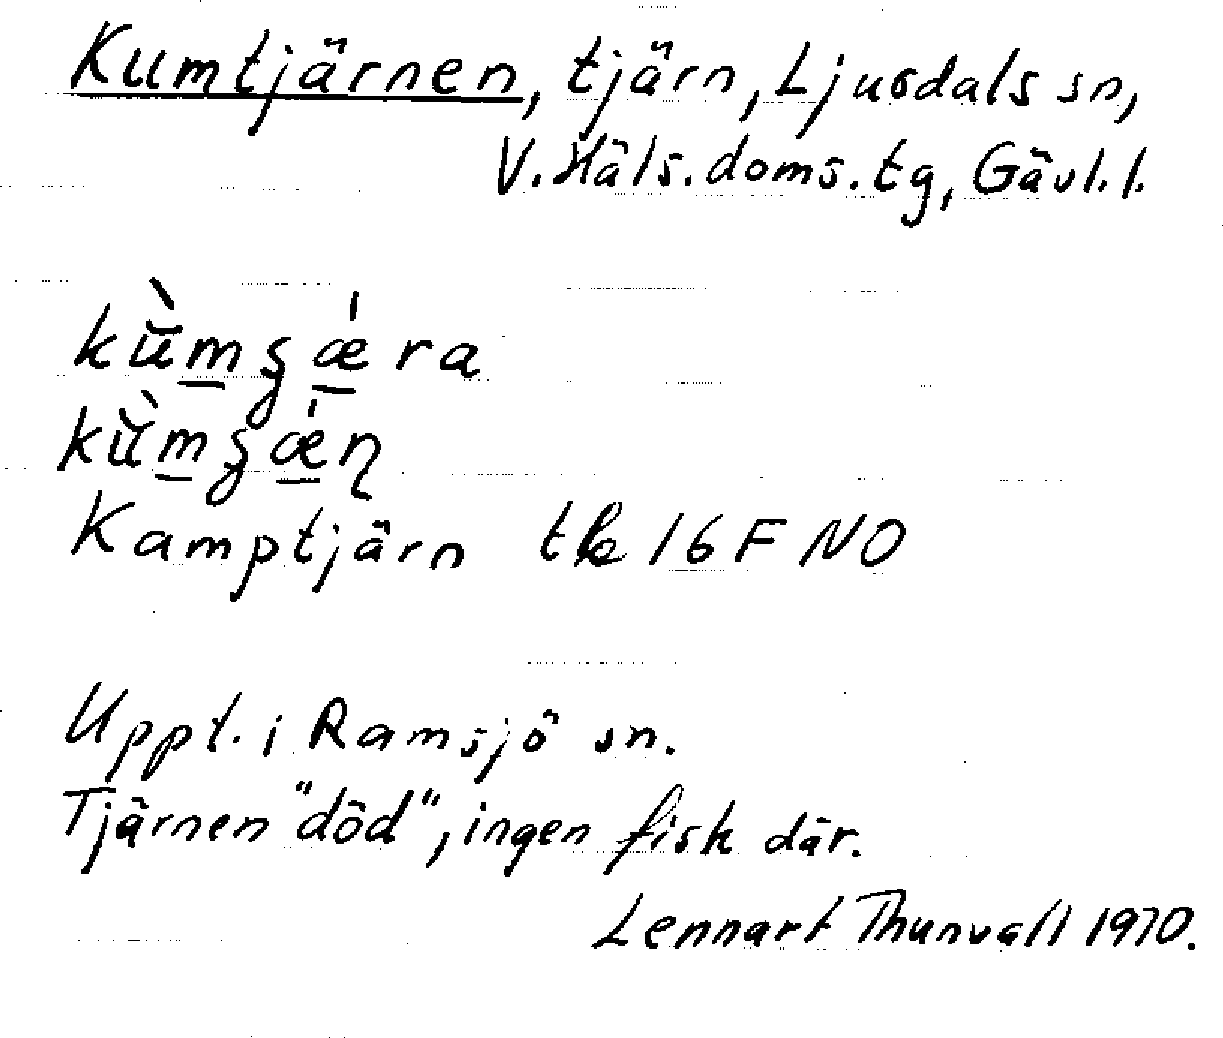 Kumtjärnen, tjärn, Ljusdals sn,
V. Häls. doms. tg, Gävl. l.
kùmʂǽra
kùmʂǽɳ
Kamptjärn tk 16 F NO
Uppt. i Ramsjö sn.
Tjärnen "död", ingen fisk där.
Lennart Thunvall 1970.